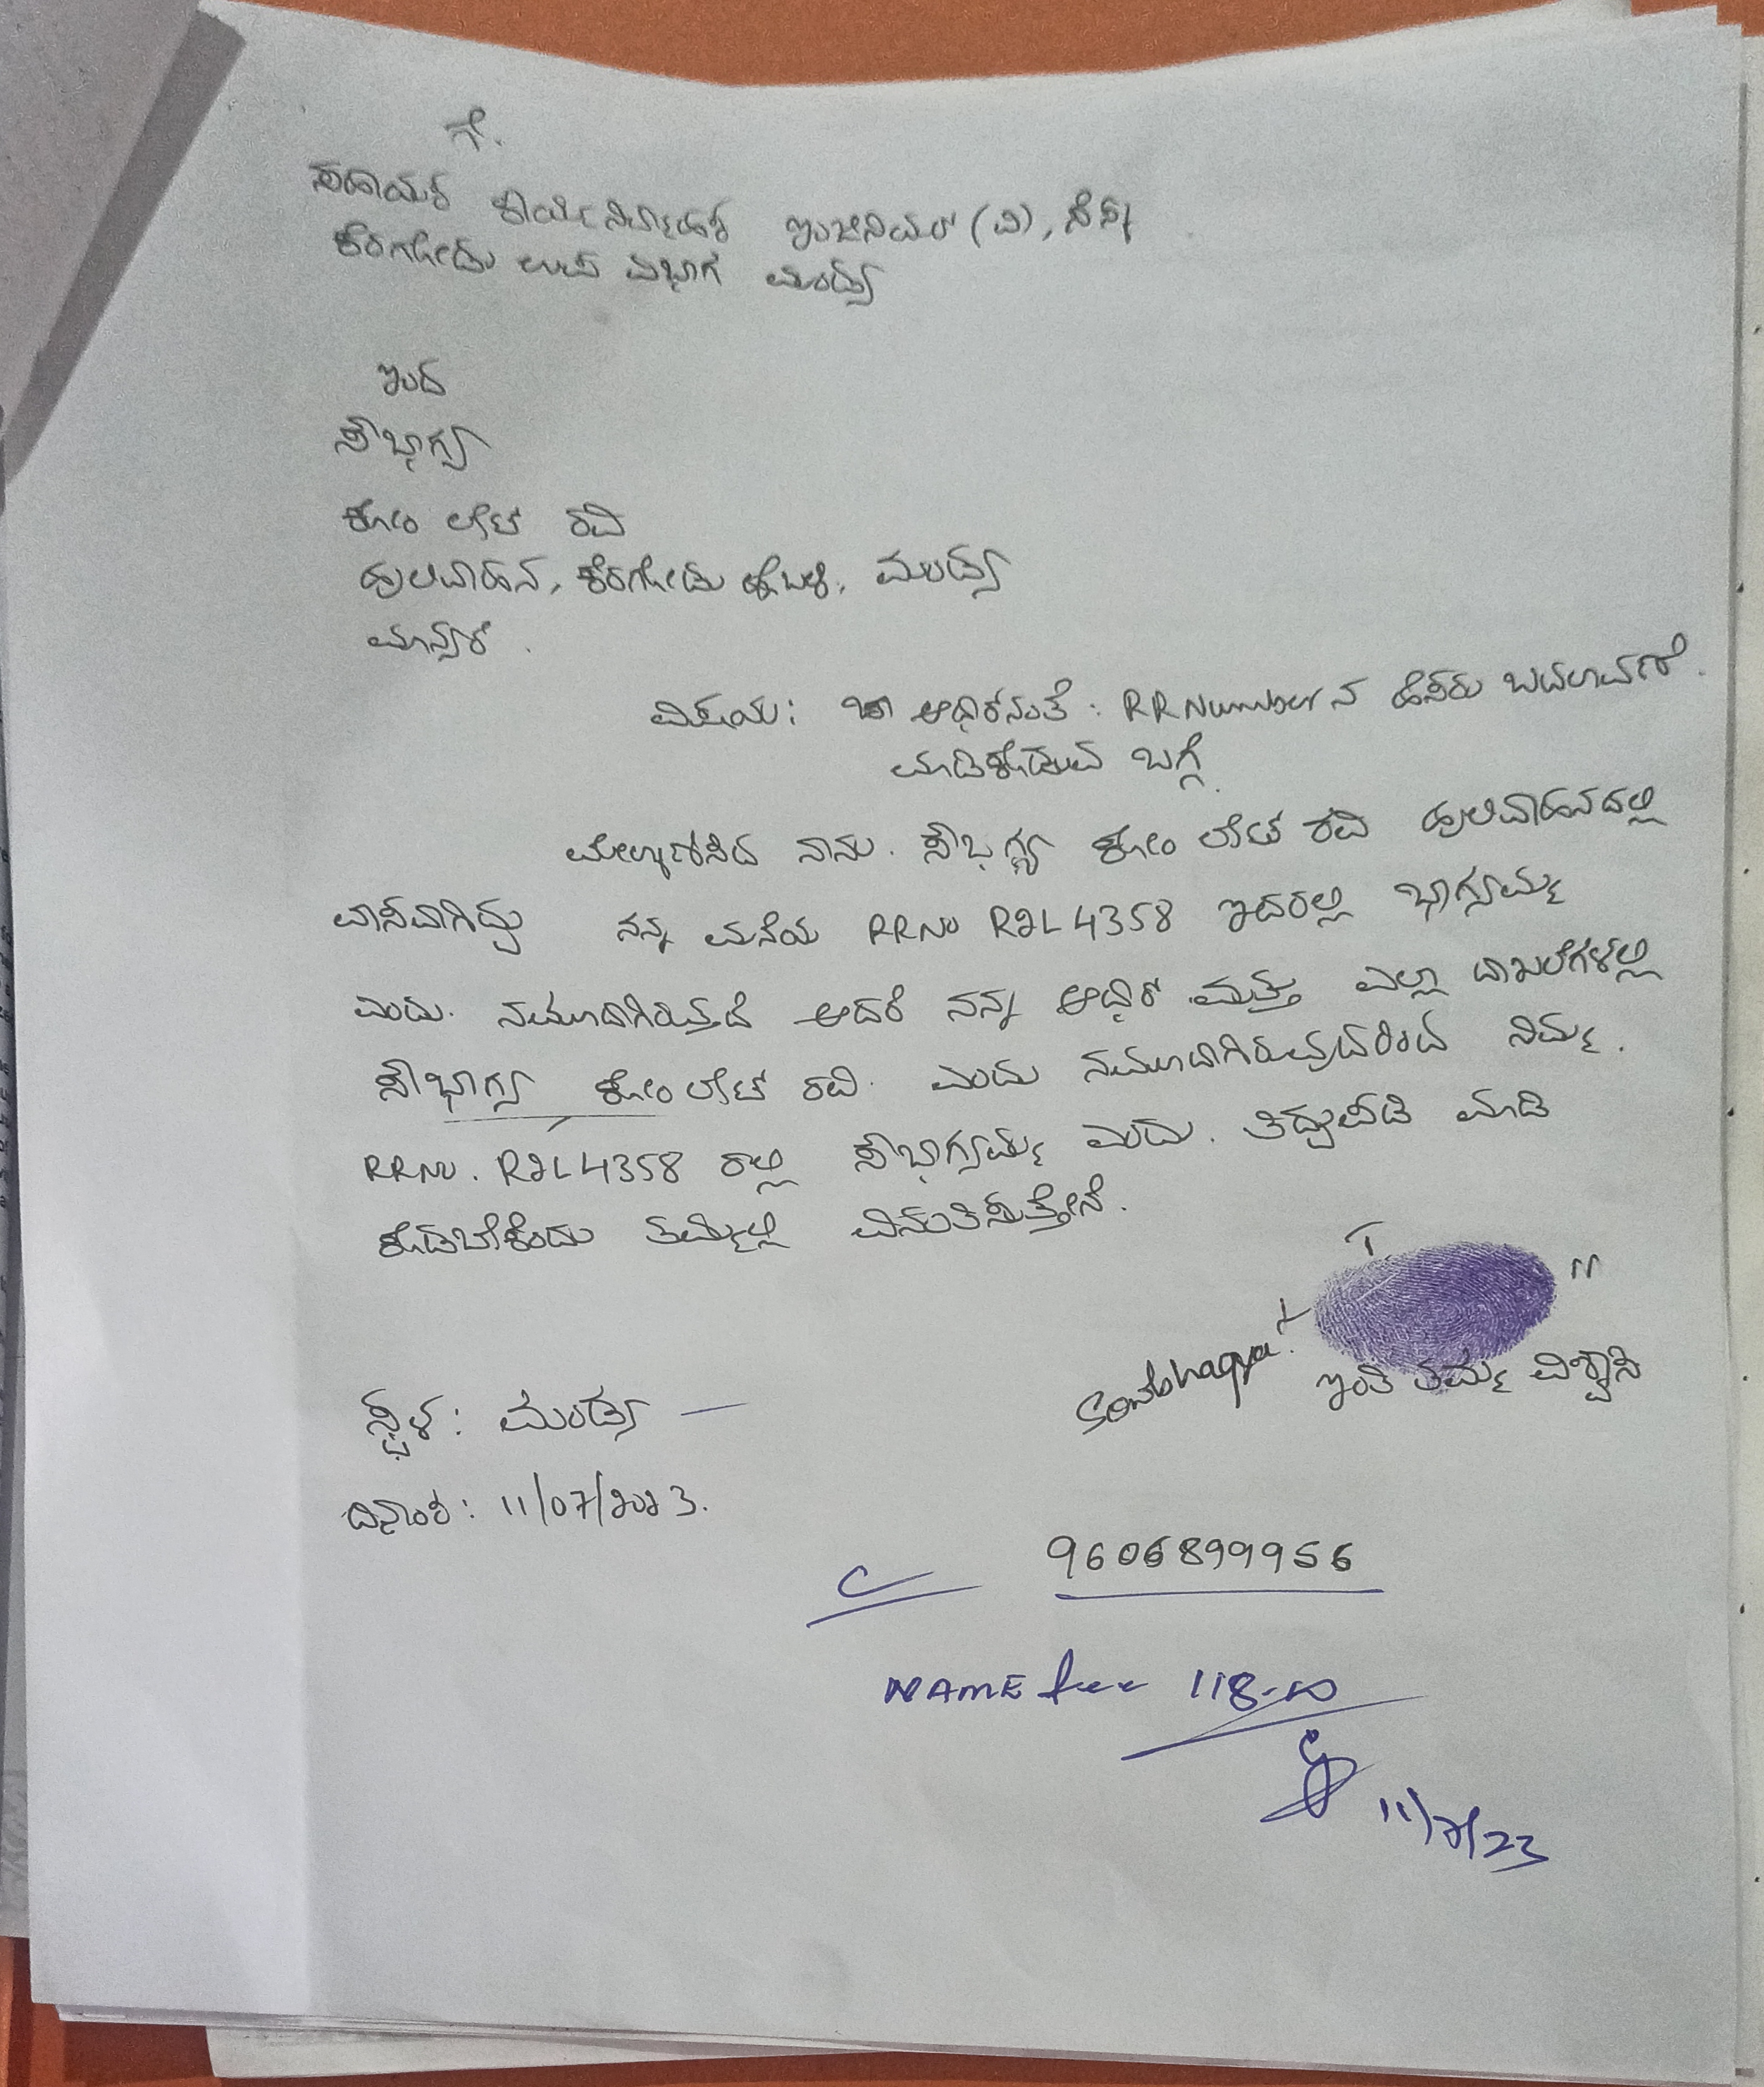 ಗೆ.
ಸಹಾಯಕ ಕಾರ್ಯನಿರ್ವಾಹಕ ಇಂಜಿನಿಯರ್ (ವಿ),
ಕೆರಗೋಡು ಉಪ ವಿಭಾಗ ಮಂಡ್ಯ
ಇಂದ
ಸೌಭಾಗ್ಯ
ಕೋಂ ಲೇಟ್ ರವಿ
ಹುಲಿವಾಹನ, ಕೆರಗೋಡು ಹೋಬಳಿ, ಮಂಡ್ಯ
ಮಾನ್ಯರೆ.
ವಿಷಯ: ಆಧಾರ್‌ನಂತೆ: RR Number ನ ಹೆಸರು ಬದಲಾವಣೆ.
ಮಾಡಿಕೊಡುವ ಬಗ್ಗೆ.
ಮೇಲ್ಕಾಣಿಸಿದ ನಾನು. ಸೌಭಗ್ಯ ಕೋಂ ಲೇಟ್ ರವಿ ಹುಲಿವಾಹನದಲ್ಲಿ
ವಾಸವಾಗಿದ್ದು ನನ್ನ ಮನೆಯ RRNO R2L4358 ಇದರಲ್ಲಿ ಭಾಗ್ಯಮ್ಮ
ಎಂದು. ನಮೂದಾಗಿರುತ್ತದೆ ಆದರೆ ನನ್ನ ಆಧಾರ್ ಮತ್ತು ಎಲ್ಲಾ ದಾಖಲೆಗಳಲ್ಲಿ
ಸೌಭಾಗ್ಯ ಕೋಂ ಲೇಟ್ ರವಿ. ಎಂದು ನಮೂದಾಗಿರುವುದರಿಂದ ನಿಮ್ಮ.
RRNO. R2L4358 ರಲ್ಲಿ ಸೌಭಾಗ್ಯಮ್ಮ ಎಂದು. ತಿದ್ದುಪಡಿ ಮಾಡಿ
ಕೊಡಬೇಕೆಂದು ತಮ್ಮಲ್ಲಿ ವಿನಂತಿಸುತ್ತೇನೆ.
L T M
Sowbhagya. ಇಂತಿ ತಮ್ಮ ವಿಶ್ವಾಸಿ
ಸ್ಥಳ: ಮಂಡ್ಯ
ದಿನಾಂಕ: 11/07/2023.
9606899956
NAME fee 118-00
11/7/23